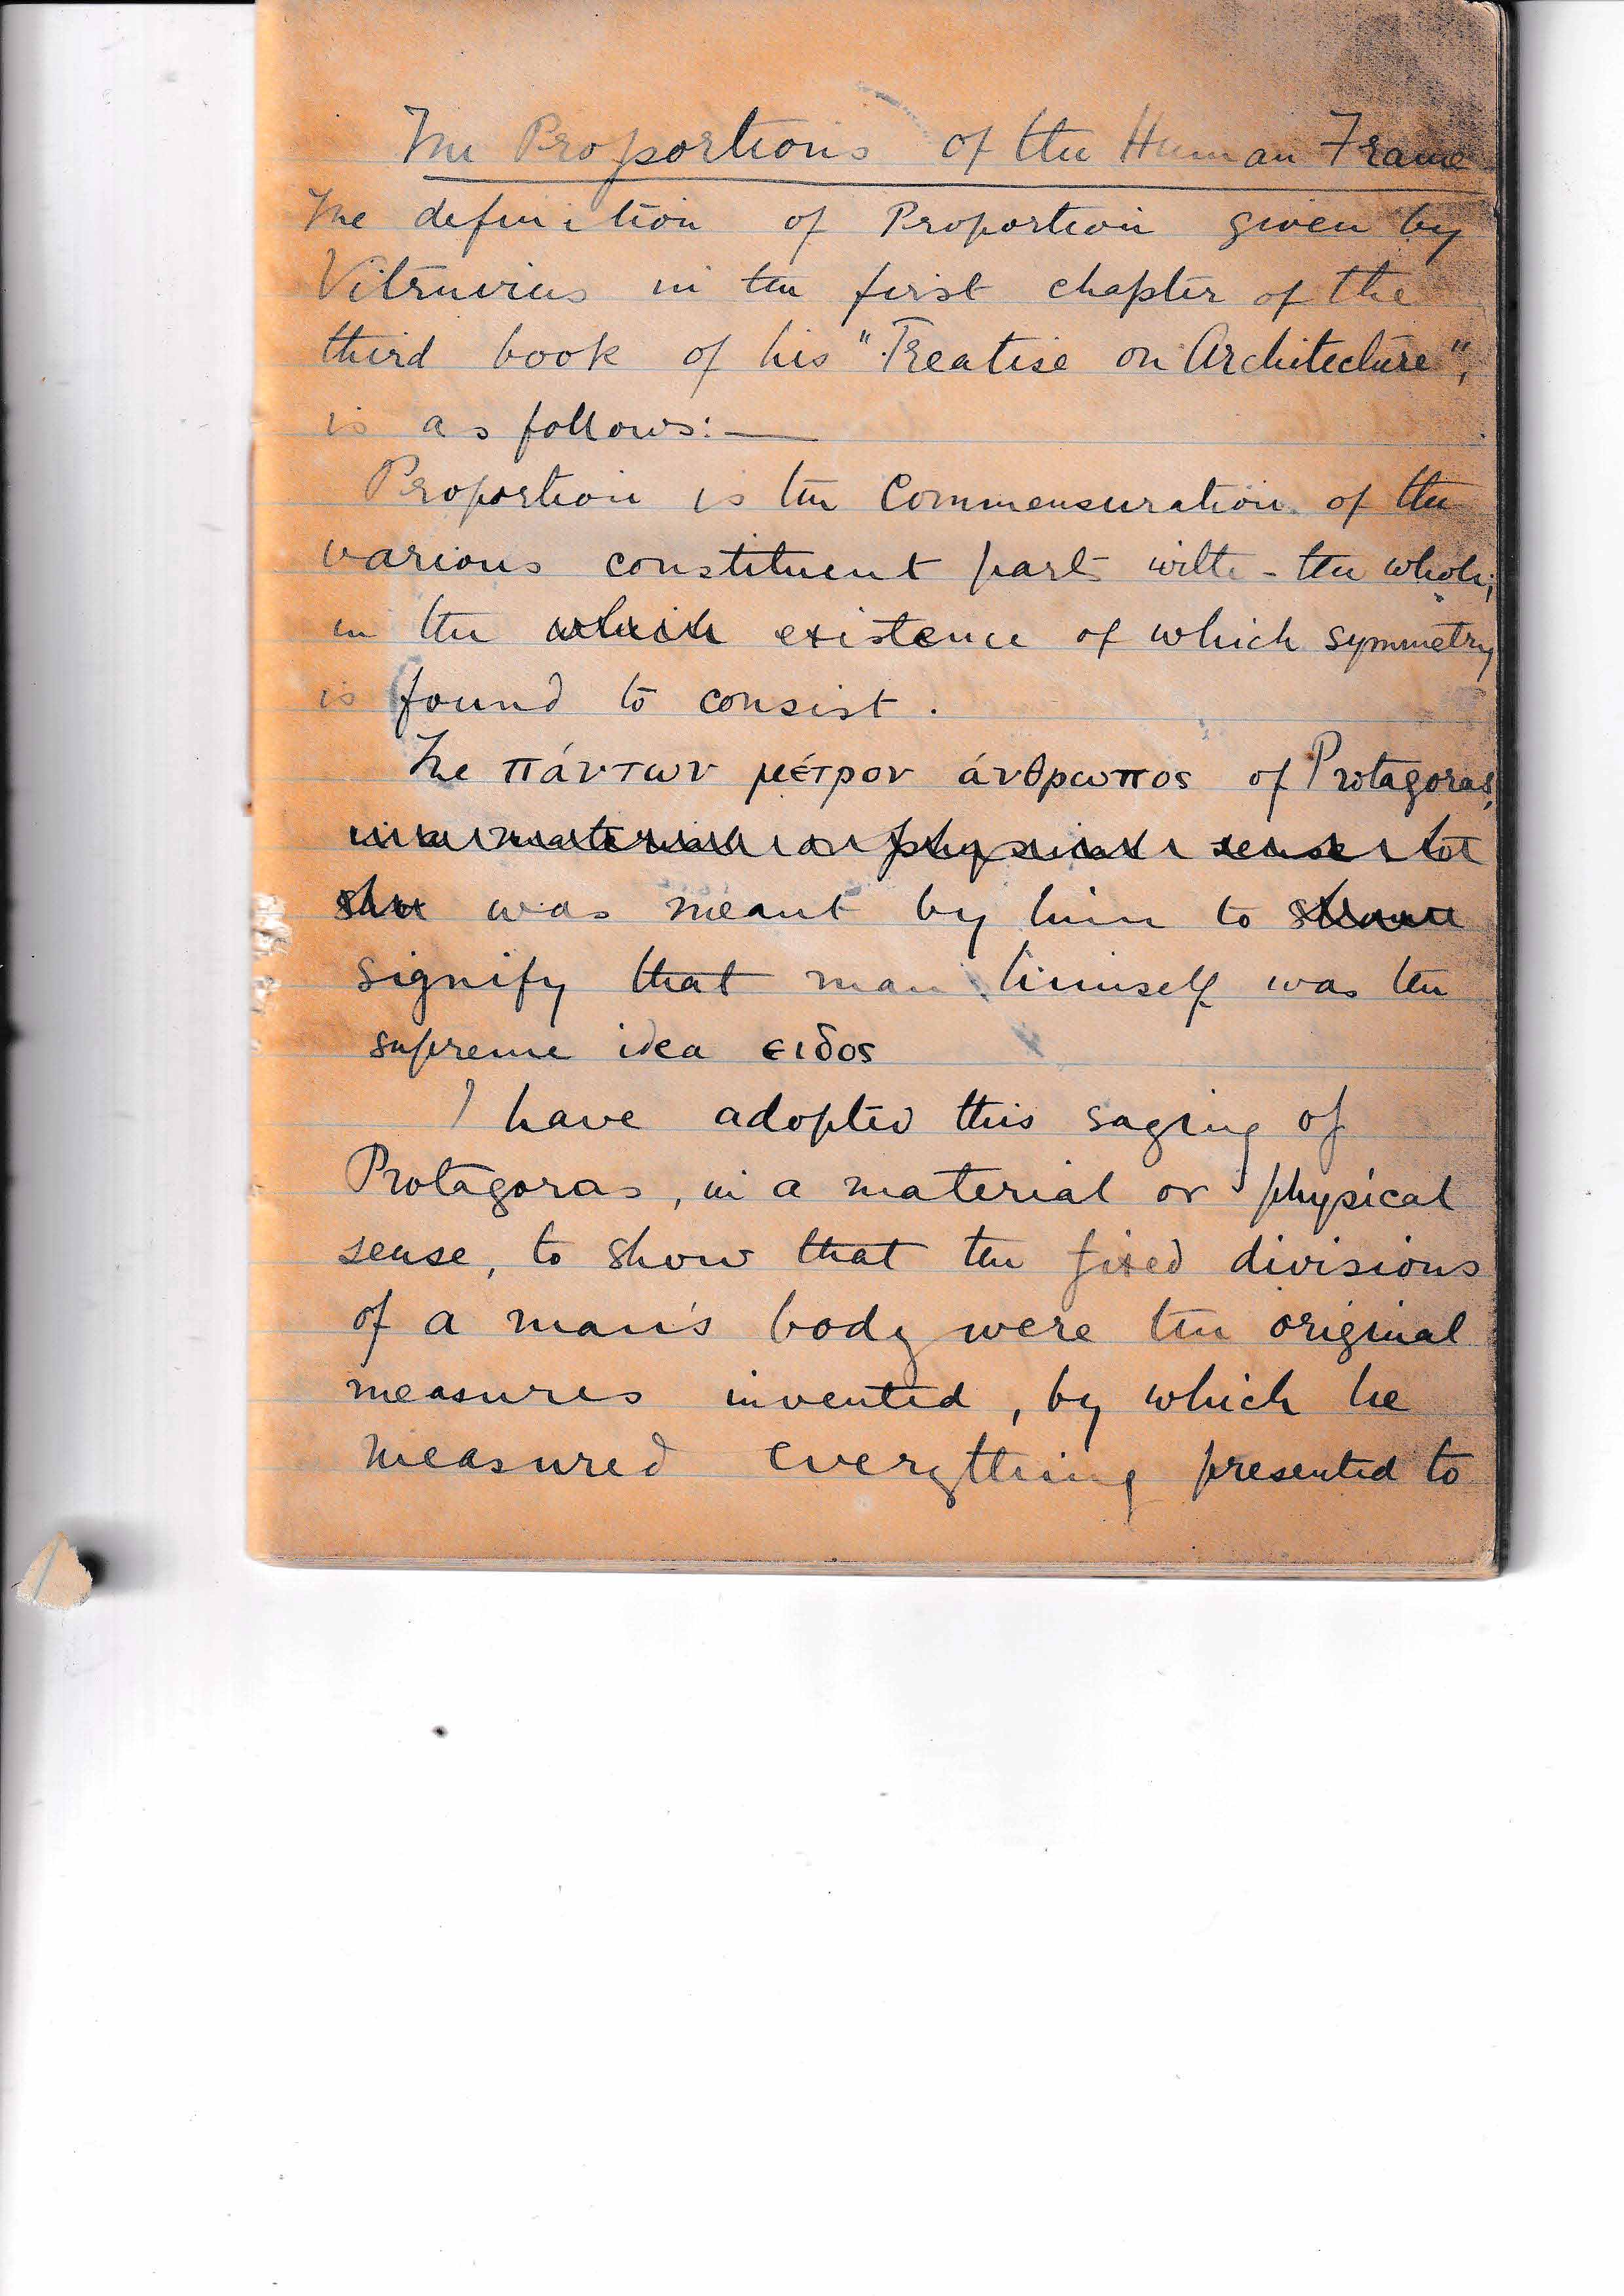 The Proportions of the Human Frame
The definition of Proportion given by
Vitruvius in the first chapter of the
third book of his "Treatise on Architecture",
is as follows:—
Proportion is the Commensuration of the
various constituent parts with the whole;
in the which existence of which symmetry
is found to consist.
The πάντων μέτρον άνθρωπος of Protagoras,
in a material or physical sense to
show was meant by him to show
signify that man himself was the
supreme idea ειδος
I have adopted this saying of
Protagoras, in a material or physical
sense, to show that the fixed divisions
of a man's body were the original
measures invented, by which he
measured everything presented to